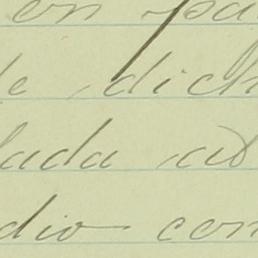 en pa
de dich
lada at
dio con